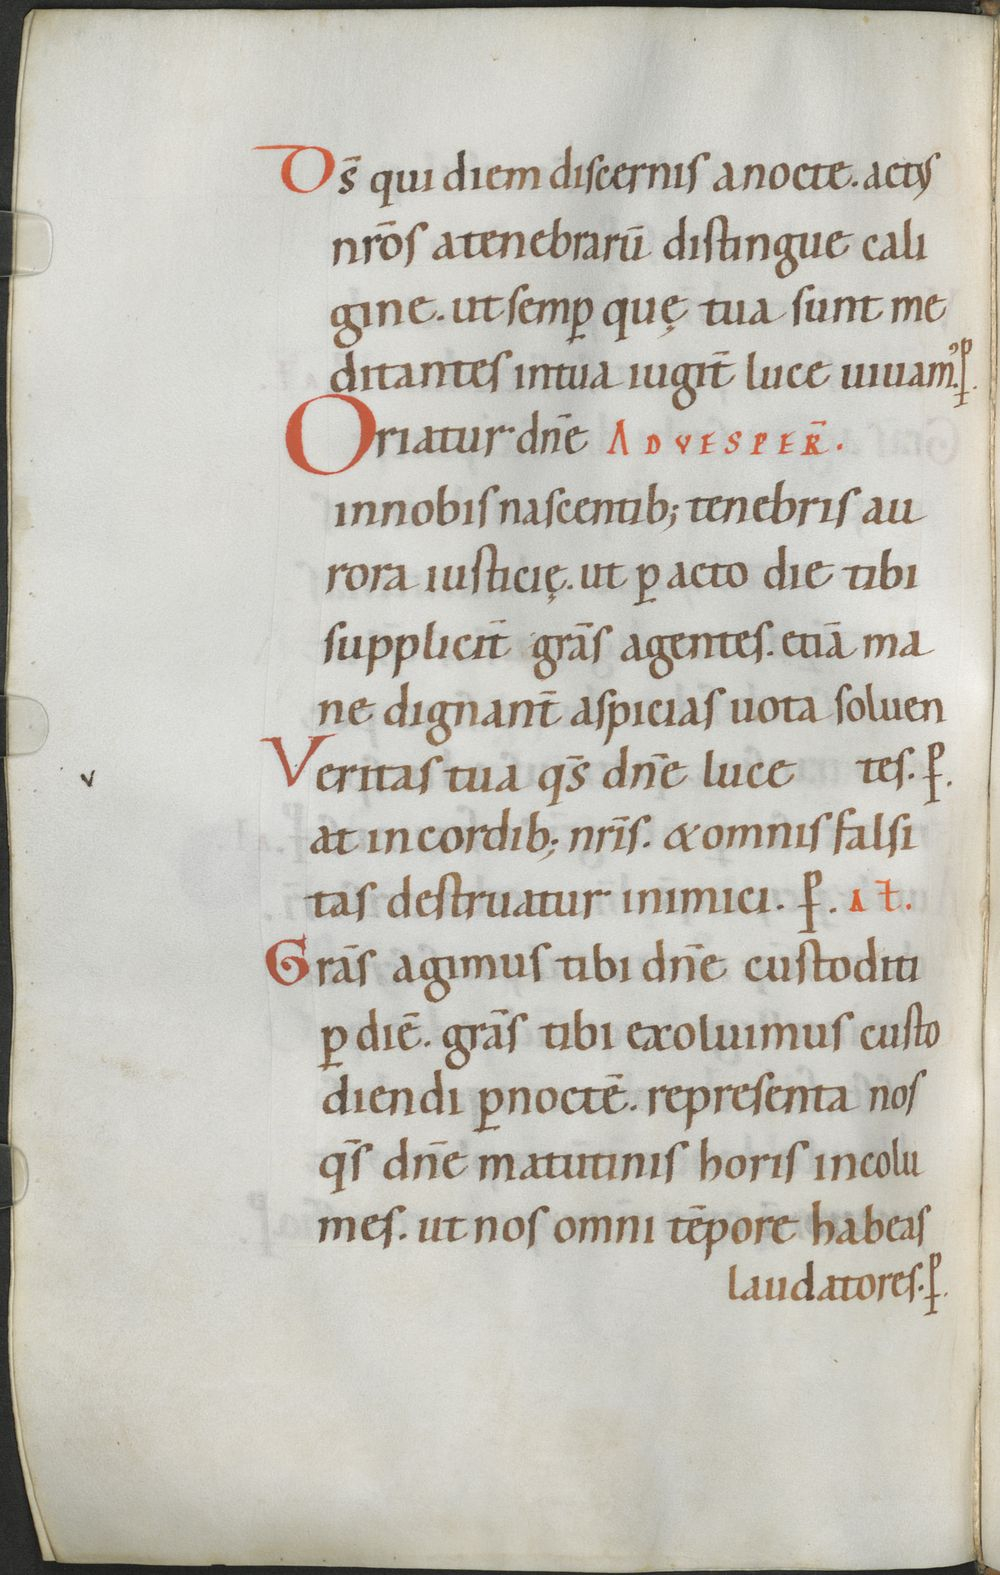 Ds̄ qui diem discernis a nocte. actꝰ
nrōs a tenebrarū distingue cali
gine. ut semꝑ quę tua sunt me
ditantes in tua iugit̄ luce uiuamꝰ. ꝑ.
Oriatur dn̄e AD VESPER̄.
in nobis nascentib; tenebris au
rora iusticię. ut ꝑacto die tibi
supplicit̄ grās agentes. etiā ma
ne dignant̄ aspicias uota soluen
Veritas tua qs̄ dn̄e luce tes. ꝑ.
v
at in cordib; nrīs. & omnis falsi
tas destruatur inimici. ꝑ. A ł.
Grās agimus tibi dn̄e custoditi
ꝑ diē. grās tibi exoluimus custo
diendi ꝑ noctē. representa nos
qs̄ dn̄e matutinis horis incolu
mes. ut nos omni tēpore habeas
laudatores. ꝑ.